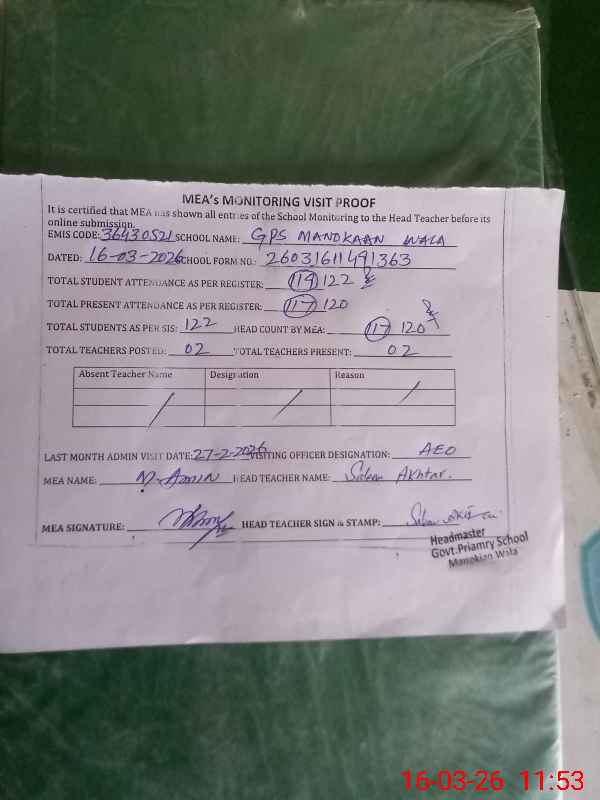 MEA's MONITORING VISIT PROOF
It is certified that MEA has shown all entries of the School Monitoring to the Head Teacher before its
online submission.
EMIS CODE: 36430521 SCHOOL NAME: GPS MANOKAAN WALA
DATED: 16-03-2026 SCHOOL FORM NO.: 26031611491363
TOTAL STUDENT ATTENDANCE AS PER REGISTER: 119 122
TOTAL PRESENT ATTENDANCE AS PER REGISTER: 117 120
TOTAL STUDENTS AS PER SIS: 122 HEAD COUNT BY MEA: 117 120
TOTAL TEACHERS POSTED: 02 TOTAL TEACHERS PRESENT: 02
Absent Teacher Name Designation Reason
LAST MONTH ADMIN VISIT DATE: 27-2-2026 VISITING OFFICER DESIGNATION: AEO
MEA NAME: M. AMIN HEAD TEACHER NAME: Saleem Akhtar.
MEA SIGNATURE: HEAD TEACHER SIGN & STAMP:
Headmaster
Govt.Priamry School
Manokian Wala
16-03-26 11:53